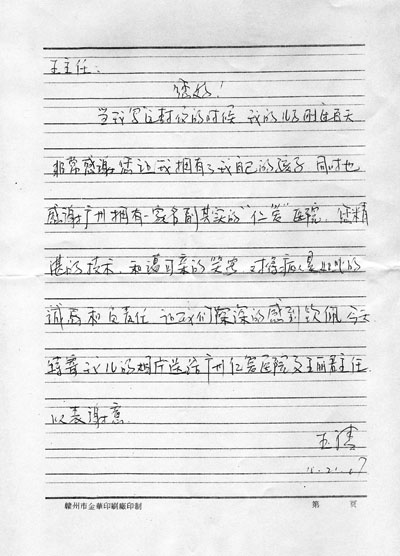 王主任：
您好！
当我写这封信的时候，我的儿子刚百天
非常感谢您让我拥有了我自己的孩子 同时也
感谢广州拥有一家名副其实的“仁爱”医院，您精
湛的技术，和蔼可亲的笑容，对待病人的
诚恳和负责任 让我们深深的感到钦佩 今天
特寄我儿的相片送给广州仁爱医院及王丽君主任
以表谢意
赣州市金华印刷厂印制
第 页